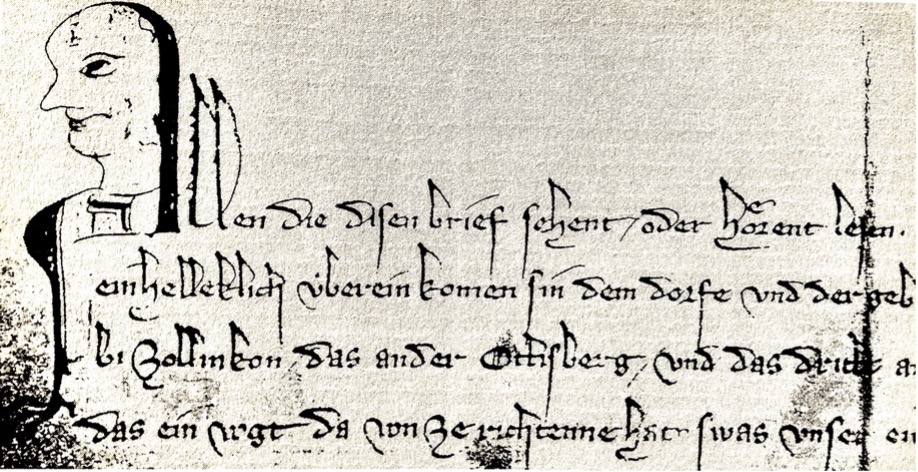 Allen die disen brief sehent / oder hoͤrent lesen.
einhelleklich úberein komen sin dem dorfe vnd der geb
bi Zollinkon / das ander Ottisberg / vnd das dritte a
das ein vogt da von ze richtenne hat swas vnser ein